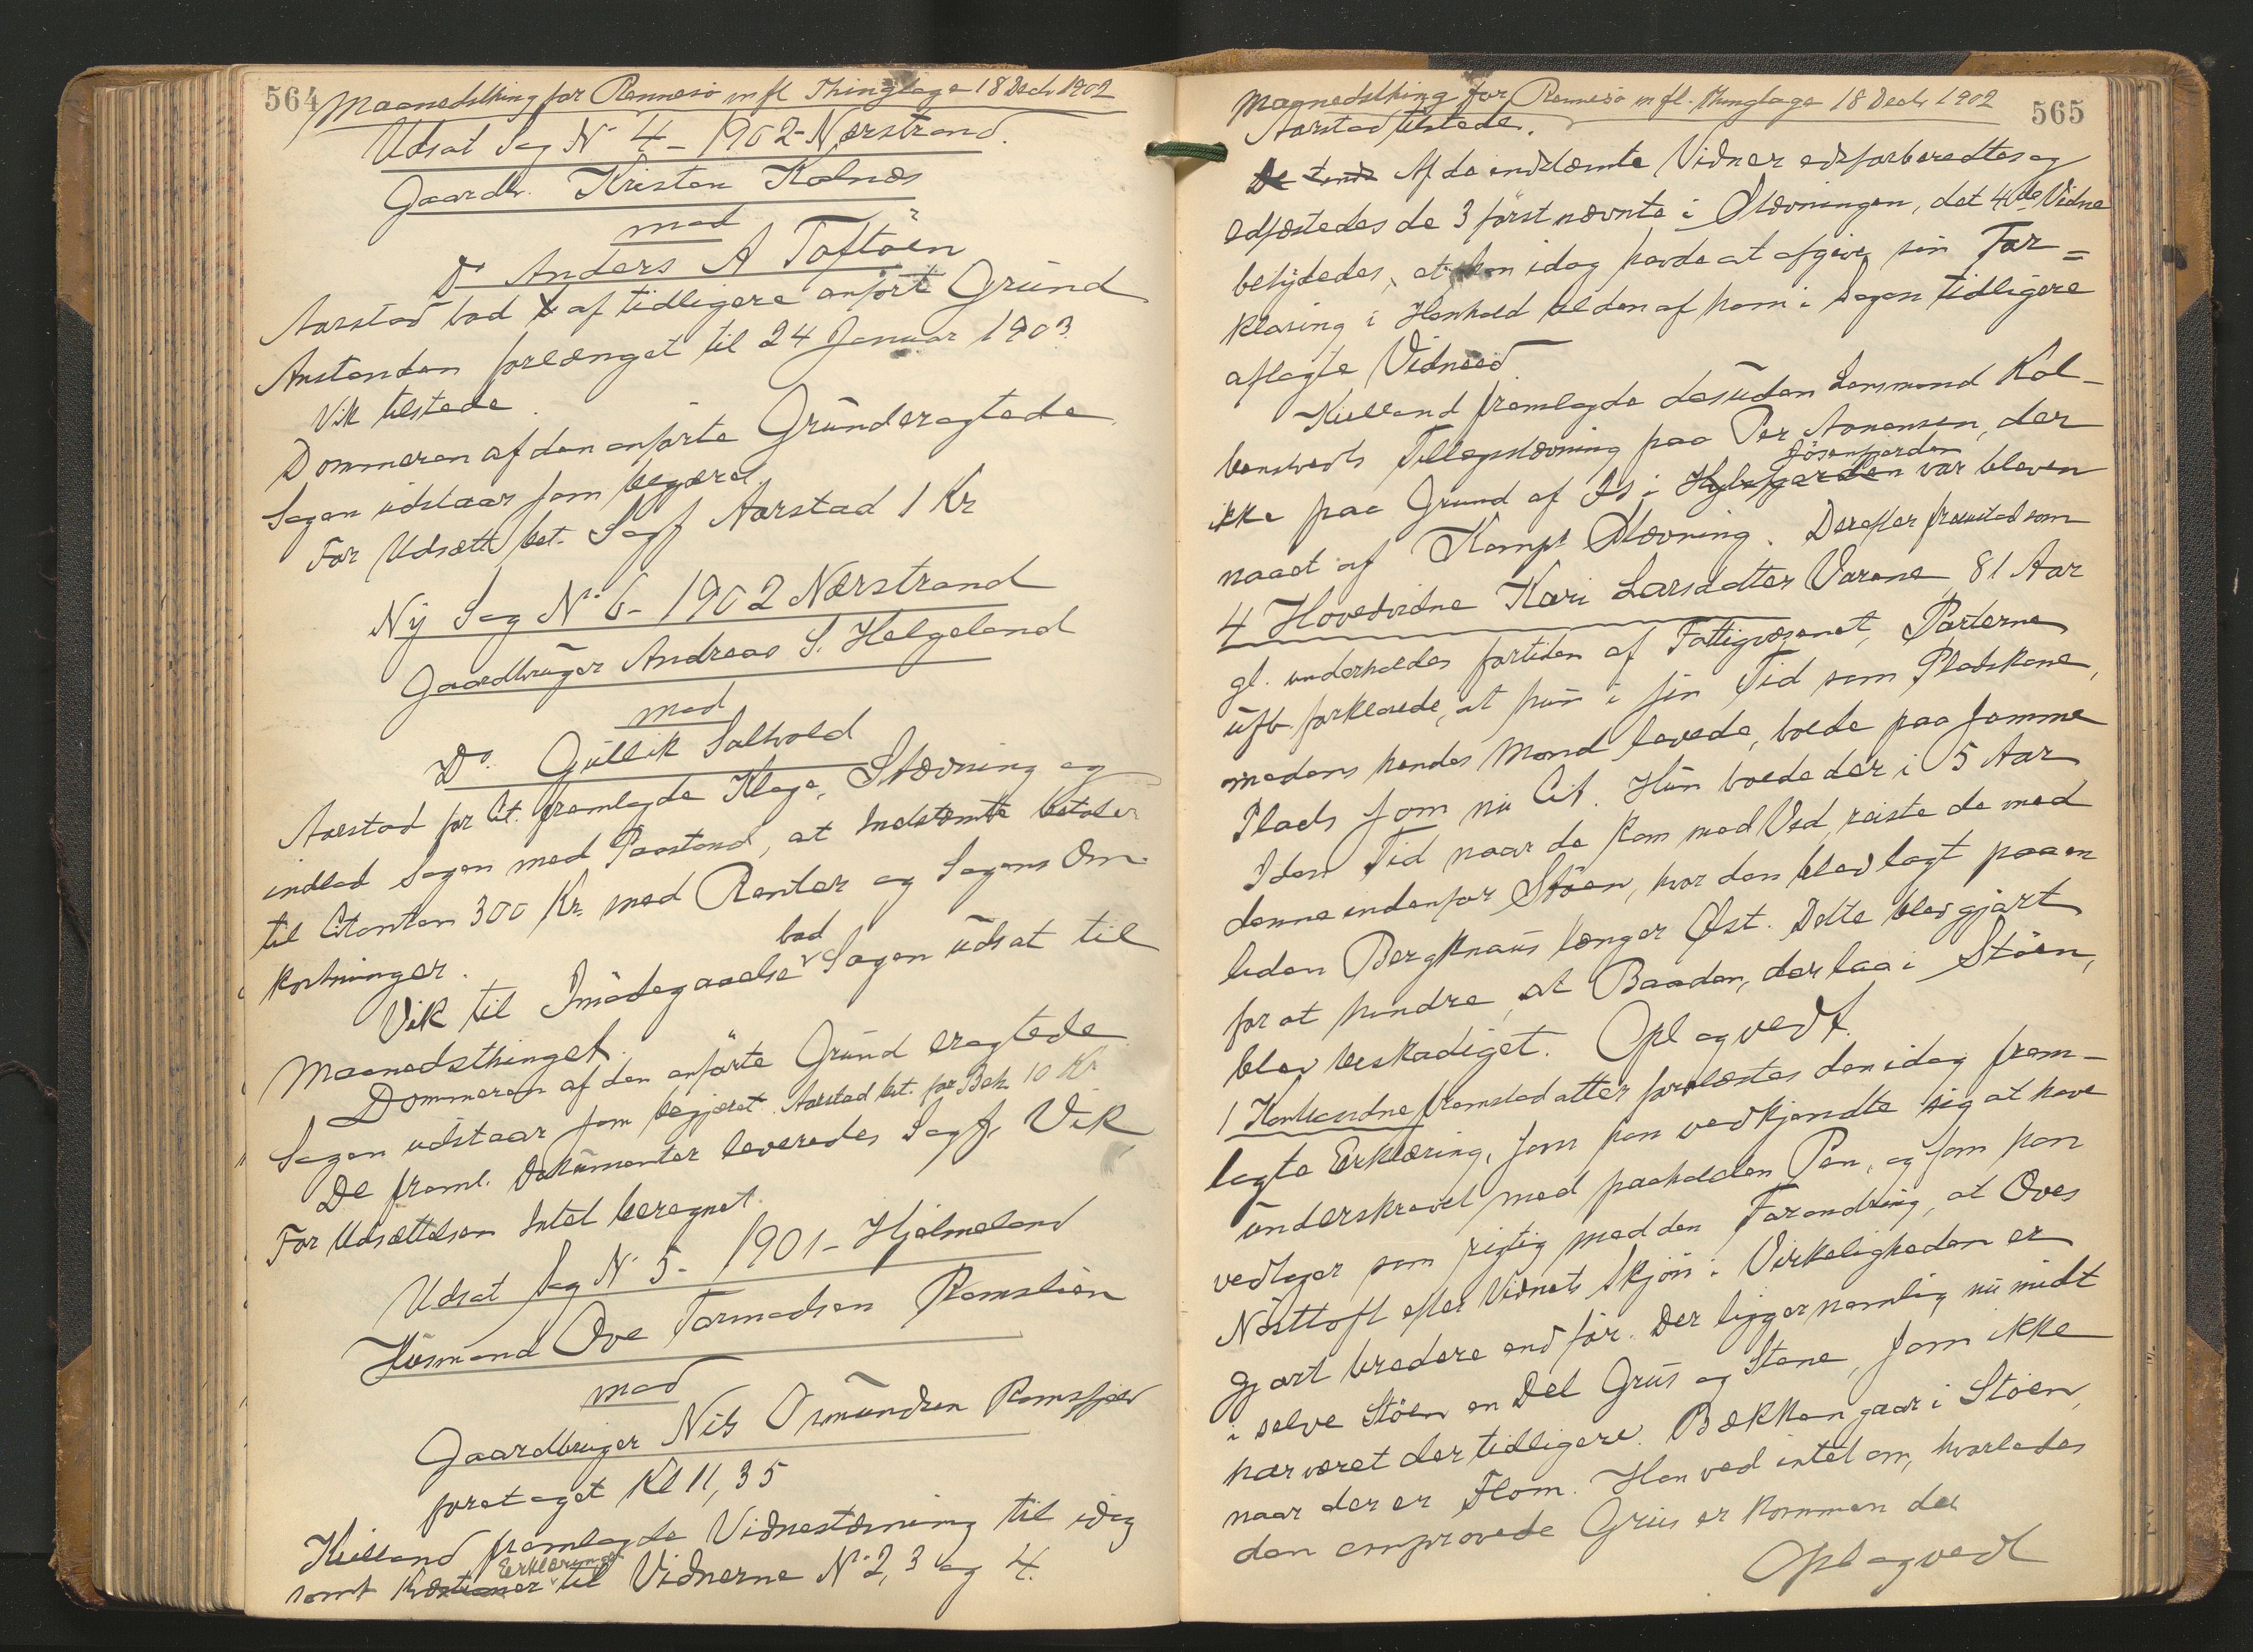 564
Maanedsthing for Rennesø m fl Thinglage 18 Decb 1902
Udsat Sag N. 4 - 1902 - Nærstrand.
Gaardbr. Kristen Kalnæs
mod
Do Anders A Toftøen
Aarstad bad af tidligere anført Grund
Anstanden forlænget til 24 Januar 1903
Vik tilstede.
Dommeren af den anførte Grund eragtede
Sagen udstaar som begjæret.
For Udsætt. bet. Sagf Aarstad 1 Kr
Ny Sag N. 6 - 1902 Nærstrand
Gaardbruger Andreas S. Helgeland
mod
Do. Gullik Saltvold
Aarstad for Cit. fremlagde Klage, Stævning og
indlod Sagen med Paastand, at Indstævnte betaler
til Citanten 300 Kr. med Renter og Sagens Om-
kostninger.
Vik til Imødegaaelse bad Sagen udsat til
Maanedsthinget.
Dommeren af den anførte Grund eragtede
Sagen udstaar som begjæret. Aarstad bet. for Beh. 10 Kr
De freml. Dokumenter leveredes Sagf. Vik.
For Udsættelsen Intet beregnet.
Udsat Sag N. 5 - 1901 - Hjelmeland
Husmand Ove Tormodsen Ramslien
mod
Gaardbruger Nils Osmundsen Ramsfjeld
foretaget Kl 11,35
Kielland fremlagde Vidnestævning til idag
samt Kvæstioner Erklæringer til Vidnerne N. 2, 3 og 4.
565
Maanedsthing for Rennesø m fl. Thinglage 18 Decb 1902
Aarstad tilstede.
De Af de indstævnte Vidner edsforberedtes og
edfæstedes de 3 først nævnte i Stævningen, det 4de Vidne
betydedes, at han idag havde at afgive sin For=
klaring i Henhold til den af ham i Sagen tidligere
aflagte Vidneed.
Kielland fremlagde desuden Lensmand Kol-
benstvedts Tillægsstævning paa Per Aanensen, der
ikke paa Grund af Is i Hylsfjorden Jøsenfjorden var bleven
naaet af Kompt Stævning. Derefter fremstod som
4 Hovedvidne Kari Larsdatter Varane, 81 Aar
gl. underholdes fortiden af Fattigvæsenet, Parterne
ufb forklarede, at hun i sin Tid som Pladskone,
medens hendes Mand levede, boede paa samme
Plads som nu Cit. Hun boede der i 5 Aar
I den Tid naar de kom med Ved, reiste de med
denne indenfor Støen, hvor den blev lagt paa en
liden Bergknaus længer Øst. Dette blev gjort
for at hindre, at Baaden, der laa i Støen,
blev beskadiget. Opl og vedt.
1 Kontravidne fremstod atter forelæstes den idag frem-
lagte Erklæring, som han vedkjendte sig at have
underskrevet med paaholden Pen, og som han
vedtager som rigtig med den Forandring, at Oves
Nøsttoft efter Vidnets Skjøn i Virkeligheden er
gjort bredere end før. Der ligger nemlig nu midt
i selve Støen en Del Grus og Stene, som ikke
har været der tidligere. Bækken gaar i Støen,
naar der er Flom. Han ved intet om, hvorledes
den omprovede Grus er kommen der
Opl og vedt